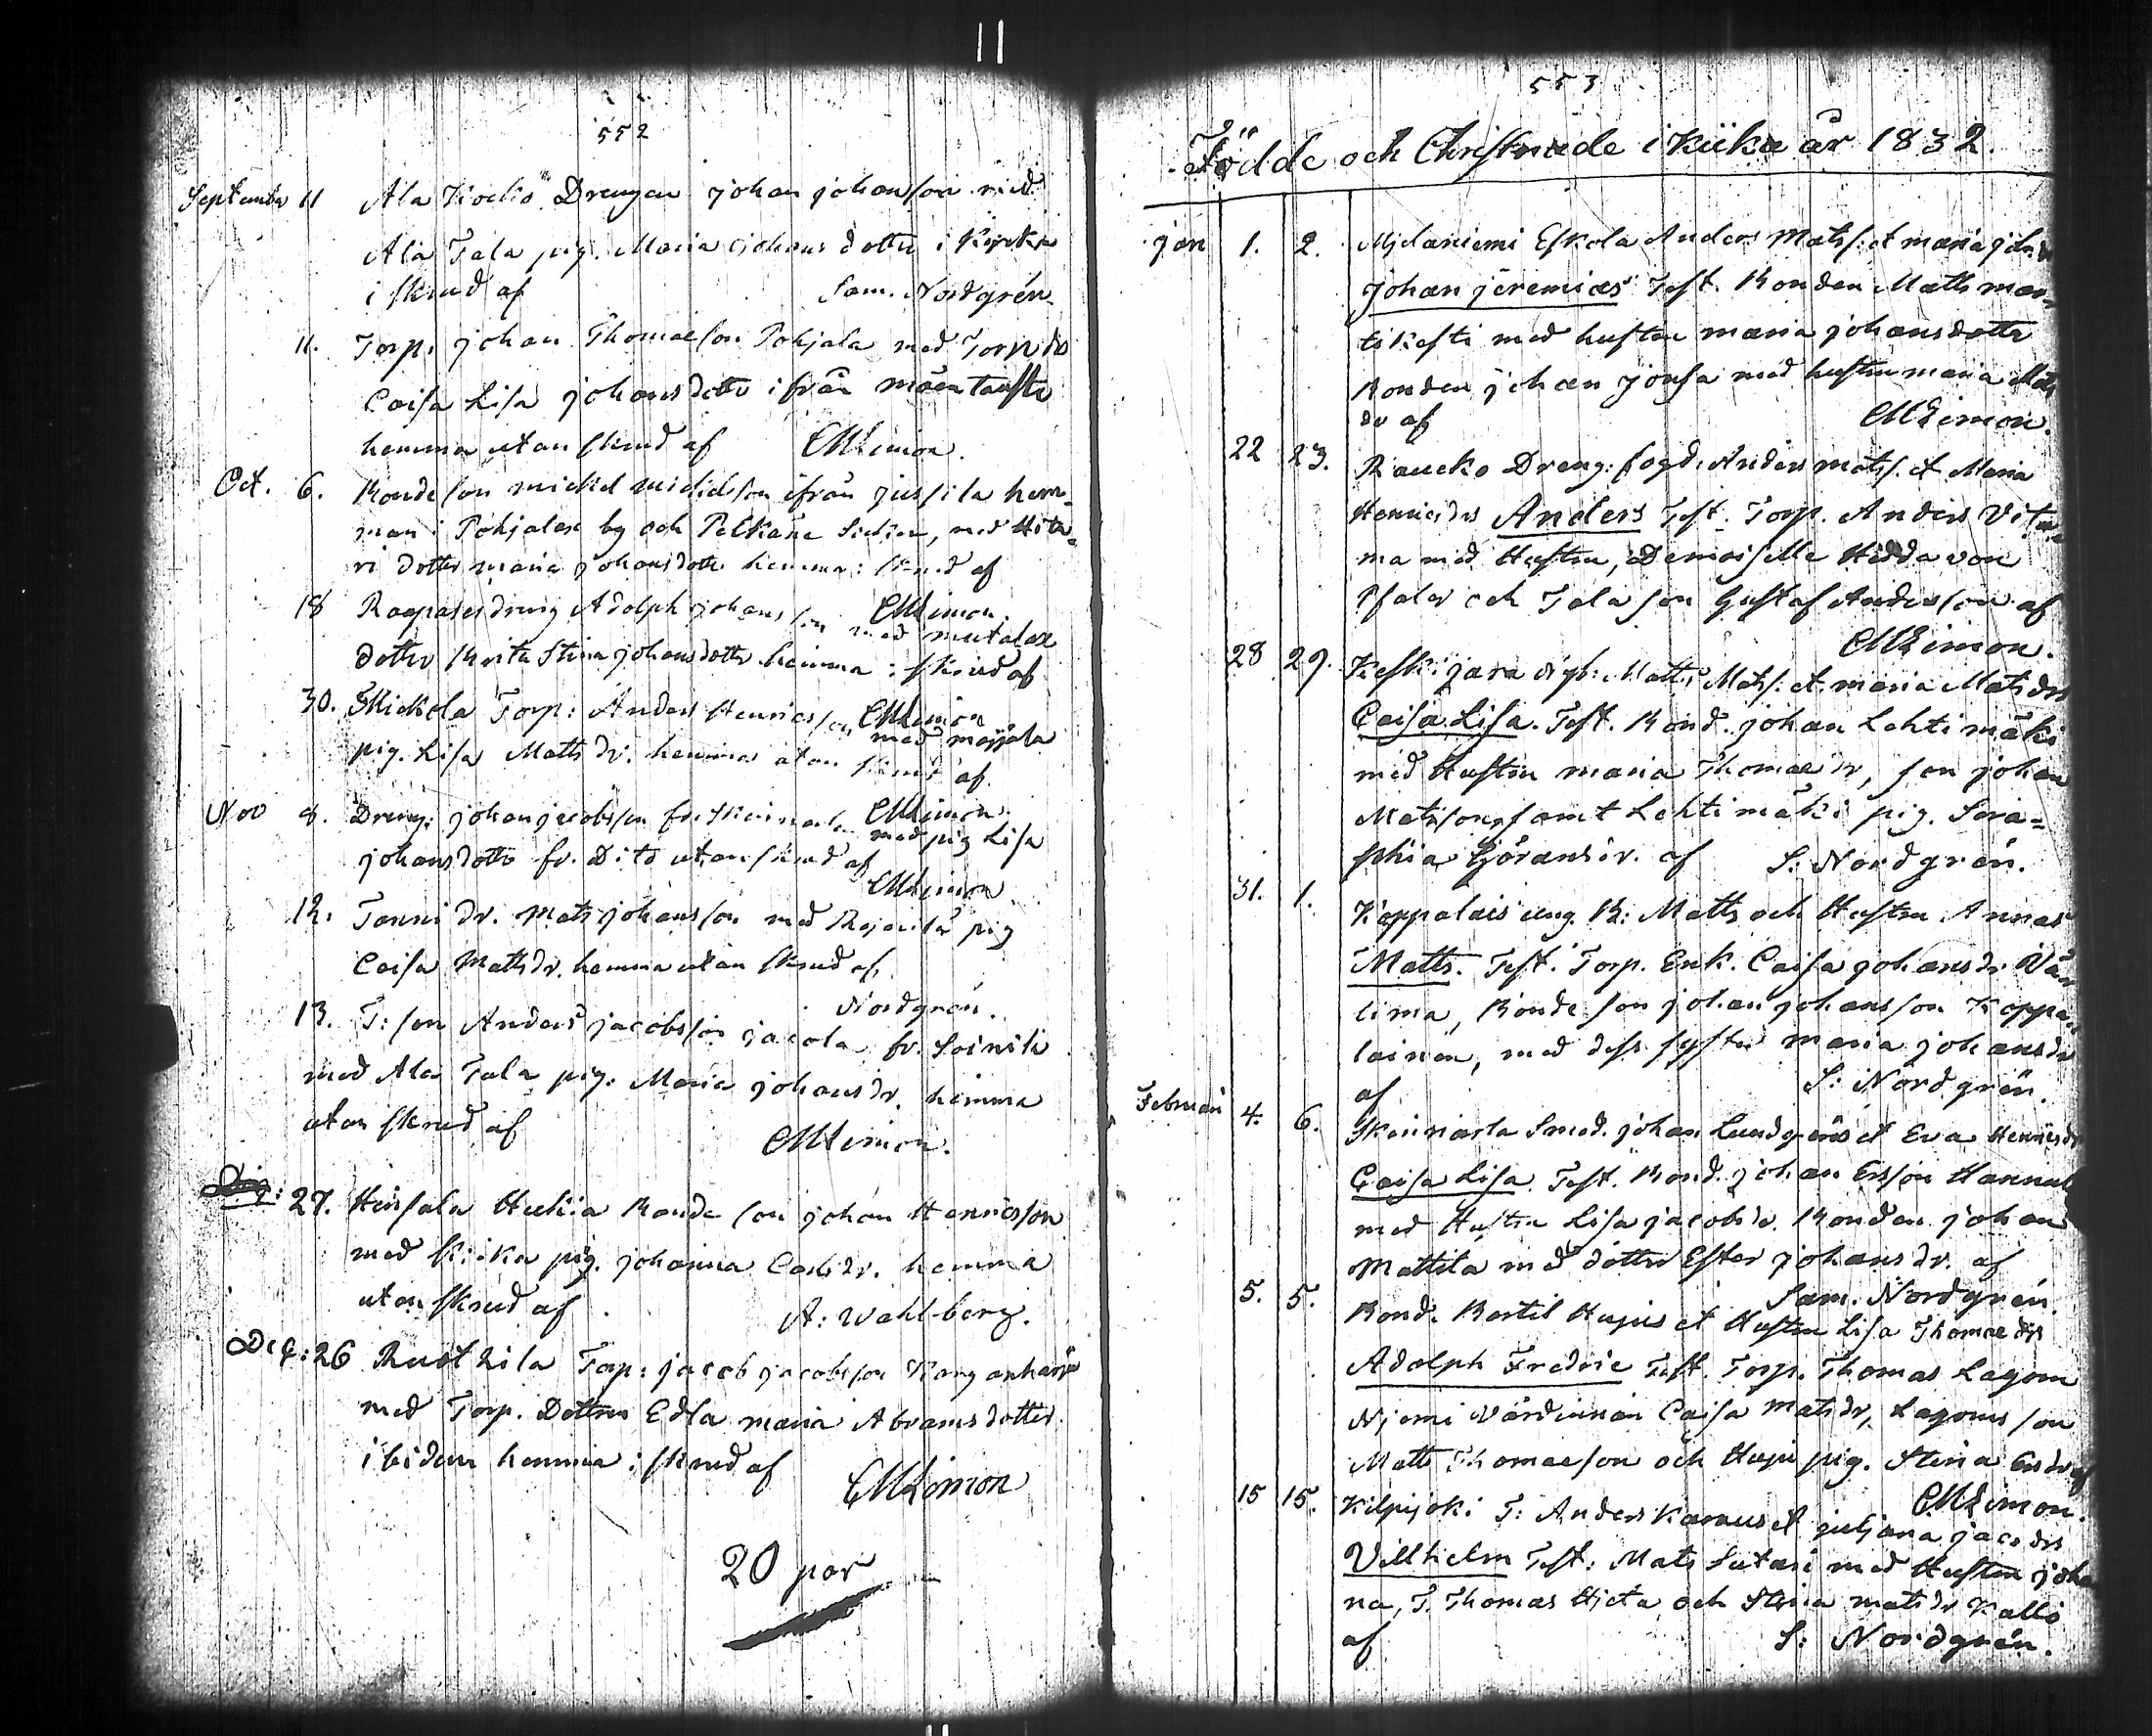 11
552
September 11 Ala Kocko Drengen johan johansson med
Ala Tala pig. Maria johans dotter i Kyrkan
i skrud af Sam. Nordgrén
11. Torp. johan Thomasson Pohjala med Torp ds
Caisa Lisa johans dotter ifrån
hemma utan skrud af CMLimon.
Oct. 6. Bondeson mickel mickelson ifrån jussila hem-
man i Pohjalax by och Pelkäne Socken, med
ri dotter maria johansdotter hemma i skrud af
CMLimon
18 dreng Adolph johans son med
dotter Brita Stina johansdotter hemma i skrud af
CMLimon
30. Mickola Torp: Anders Henricsson med
pig. Lisa Matts dr. hemma utan skrud af
CMLimon
Nov 8. Dreng: johan jacobsson fr. med pig Lisa
johansdotter fr. Dito utan skrud af
CMLimon
12. Tonni dr. Mats johansson med pig
Caisa Mattsdr. hemma utan skrud af
Nordgrén.
13. T: son Anders jacobsson jacola fr. Soinila
med Ala Tala pig. Maria johansdr. hemma
utan skrud af CMLimon.
27. Heinsala Bonde son johan Henricsson
med Kiika pig. johanna Carlsdr. hemma
utan skrud af A: Wahlberg.
Dec: 26 Torp: jacob jacobsson
med Torp. Dottren Edla maria Abrams dotter
ibidem hemma i skrud af
CMLimon
20 par
553
Födde och Christnade i Kiika år 1832.
jan 1. 2. Myllyniemi Eskola Anders Mats s: et maria joh. d
johan jeremias Test. Bonden Matts man-
tikesti med hustru maria johansdotter
Bonden johan jousa med hustru maria Mats
dr af CMLimon.
22 23. Raucko Dreng: fogd. Anders mats s. et Maria
Henricsdr Anders Test. Torp. Anders
ma med Hustru, Demoiselle Hedda von
Pfaler och Tala son Gustaf Andersson af
CMLimon.
28 29. Keski jara Matts Mats s: et maria Matsdr
Caisa Lisa. Test. Bond. johan Lehtimäki
med Hustru maria Thomaedr, son johan
Matsson, samt Lehtimäki pig. Sera-
phia Göransdr. af S: Nordgrén.
31. 1. Koppalais ung. B: Matts och Hustru Annas
Matts. Test. Torp. Enk. Caisa johansdr
lima, Bonde son johan johansson Koppa-
lainen, med dess syster maria johansdr
af S: Nordgrén.
Februari 4. 6. Skinnarla Smed. johan Lundgrens et Eva Henricsdr
Caisa Lisa. Test. Bond. johan Ersson Hannula
med Hustru Lisa jacobsdr. Bonden johan
Mattila med dotter Ester johansdr. af
Sam. Nordgrén.
5. 5. Bond. Bertil Hupius et Hustru Lisa Thomaedr
Adolph Fredric Test. Torp. Thomas Lagom
Njemi Värdinnan Caisa Matsdr, Lagoms son
Matts Thomaeson och Hupi pig. Stina Ersdr af
CMLimon.
15 15. Kilpijoki T: Anders Karnus et juljana jacobsdr
Vilhelm Test: Mats Sutari med Hustru joha
na, T. Thomas Hjeta och Stina matsdr Kallo
af S: Nordgrén.